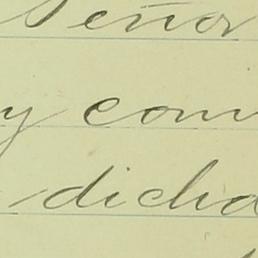 Señor
y com
dicha